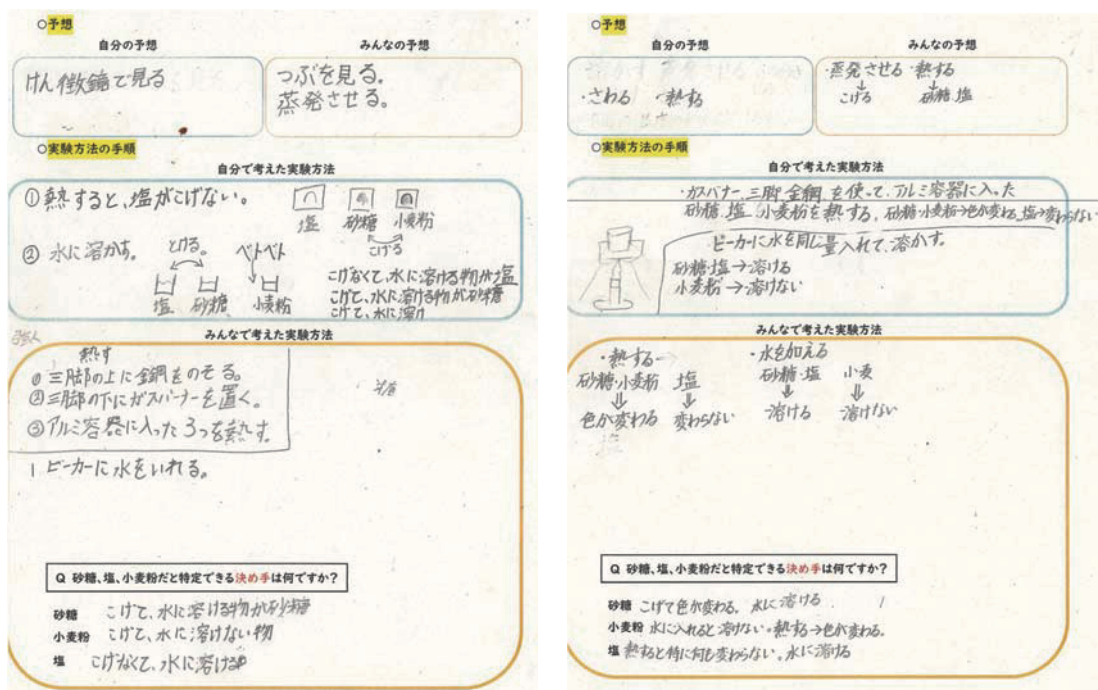 ○予想
自分の予想 みんなの予想
けん微鏡で見る
つぶを見る。
蒸発させる。
○実験方法の手順
自分で考えた実験方法
①熱すると、塩がこげない。
塩 砂糖 小麦粉
こげる
②水に溶かす。 とける。 ベトベト
塩 砂糖 小麦粉
こげなくて、水に溶ける物が塩
こげて、水に溶ける物が砂糖
こげて、水に溶け
みんなで考えた実験方法
熱す
①三脚の上に金網をのせる。
②三脚の下にガスバーナーを置く。
③アルミ容器に入った3つを熱す。
1 ビーカーに水をいれる。
Q 砂糖、塩、小麦粉だと特定できる決め手は何ですか?
砂糖 こげて、水に溶ける物が砂糖
小麦粉 こげて、水に溶けない物
塩 こげなくて、水に溶ける
○予想
自分の予想 みんなの予想
・さわる ・熱する
蒸発させる ・熱する
↓ ↓
こげる 砂糖、塩
○実験方法の手順
自分で考えた実験方法
・ガスバーナー、三脚、金網を使って、アルミ容器に入った
砂糖、塩、小麦粉を熱する。砂糖・小麦粉→色が変わる、塩→変わらない
ビーカーに水を同じ量入れて、溶かす。
砂糖・塩→溶ける
小麦粉→溶けない
みんなで考えた実験方法
・熱する→ ・水を加える
砂糖・小麦粉 塩 砂糖・塩 小麦
⇓ ⇓ ⇓ ⇓
色が変わる 変わらない 溶ける 溶けない
塩
Q 砂糖、塩、小麦粉だと特定できる決め手は何ですか?
砂糖 こげて色が変わる。水に溶ける
小麦粉 水に入れると溶けない。熱する→色が変わる。
塩 熱すると特に何も変わらない。水に溶ける